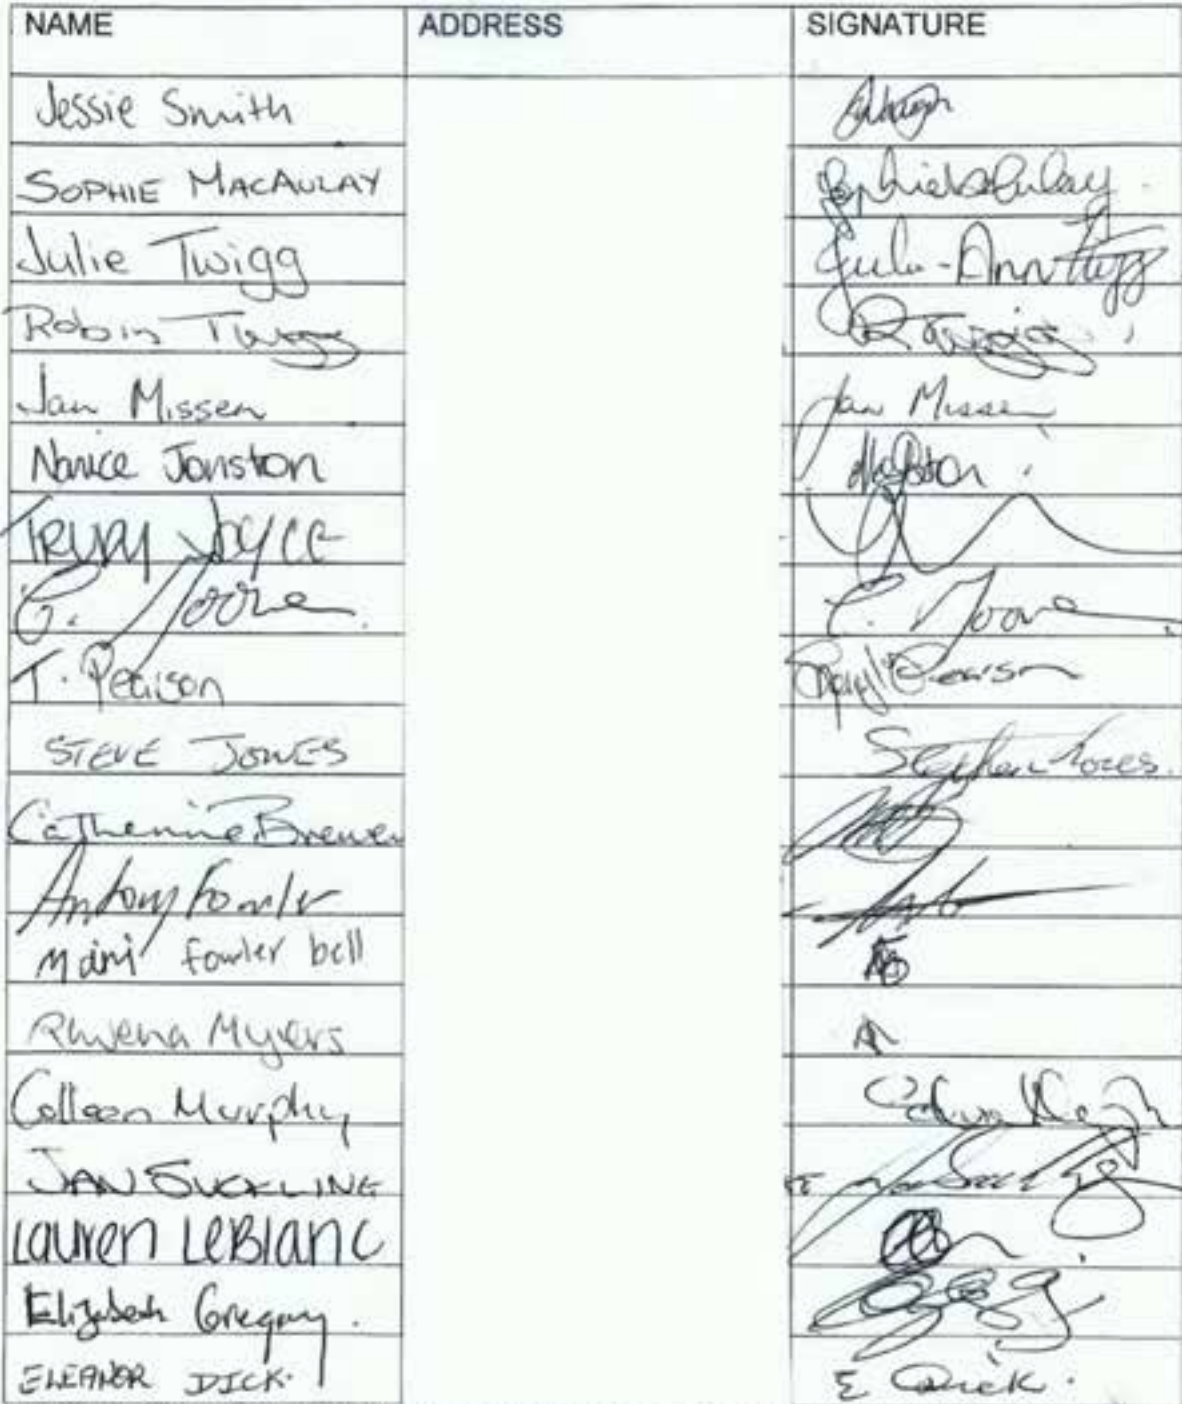 NAME ADDRESS SIGNATURE
Jessie Smith
SOPHIE MACAULAY
Julie Twigg Julie-Ann Twigg
Robin Twigg R Twigg
Jan Missen Jan Missen
Narice Jonston
TRUDY JOYCE
C. Moore C. Moore
T. Pearson Pearson
STEVE JONES Stephen Jones.
Catherine Brewer
Antony Fowler
Mairi fowler bell
Rhwena Myers
Colleen Murphy
JAN SUCKLING Jan Suckling
Lauren LeBlanc
Elizabeth Gregory.
ELEANOR DICK. E Dick.